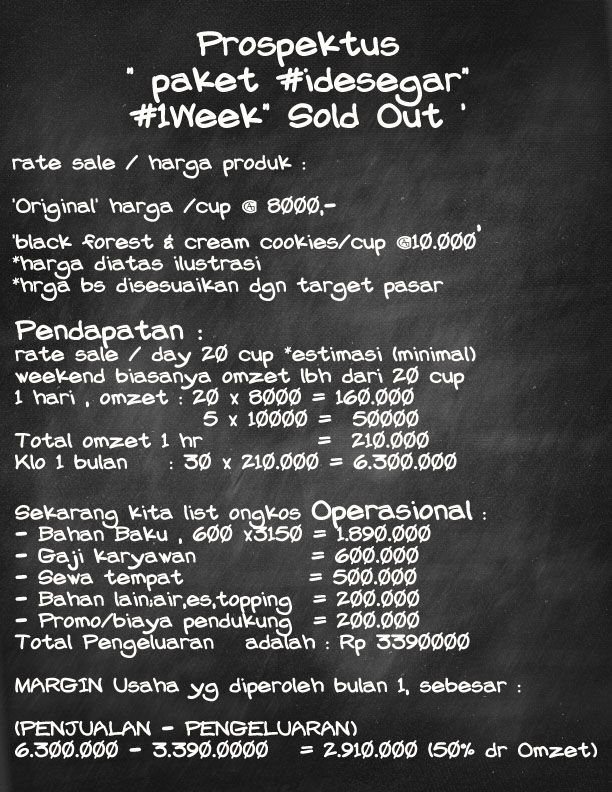 Prospektus
" paket #idesegar"
#1Week" Sold Out '
rate sale / harga produk :
'Original' harga /cup @ 8000,-
'black forest & cream cookies/cup @10.000'
*harga diatas ilustrasi
*hrga bs disesuaikan dgn target pasar
Pendapatan :
rate sale / day 20 cup *estimasi (minimal)
weekend biasanya omzet lbh dari 20 cup
1 hari , omzet : 20 x 8000 = 160.000
5 x 10000 = 50000
Total omzet 1 hr = 210.000
Klo 1 bulan : 30 x 210.000 = 6.300.000
Sekarang kita list ongkos Operasional :
- Bahan Baku , 600 x3150 = 1.890.000
- Gaji karyawan = 600.000
- Sewa tempat = 500.000
- Bahan lain;air,es,topping = 200.000
- Promo/biaya pendukung = 200.000
Total Pengeluaran adalah : Rp 3390000
MARGIN Usaha yg diperoleh bulan 1, sebesar :
(PENJUALAN - PENGELUARAN)
6.300.000 - 3.390.0000 = 2.910.000 (50% dr Omzet)